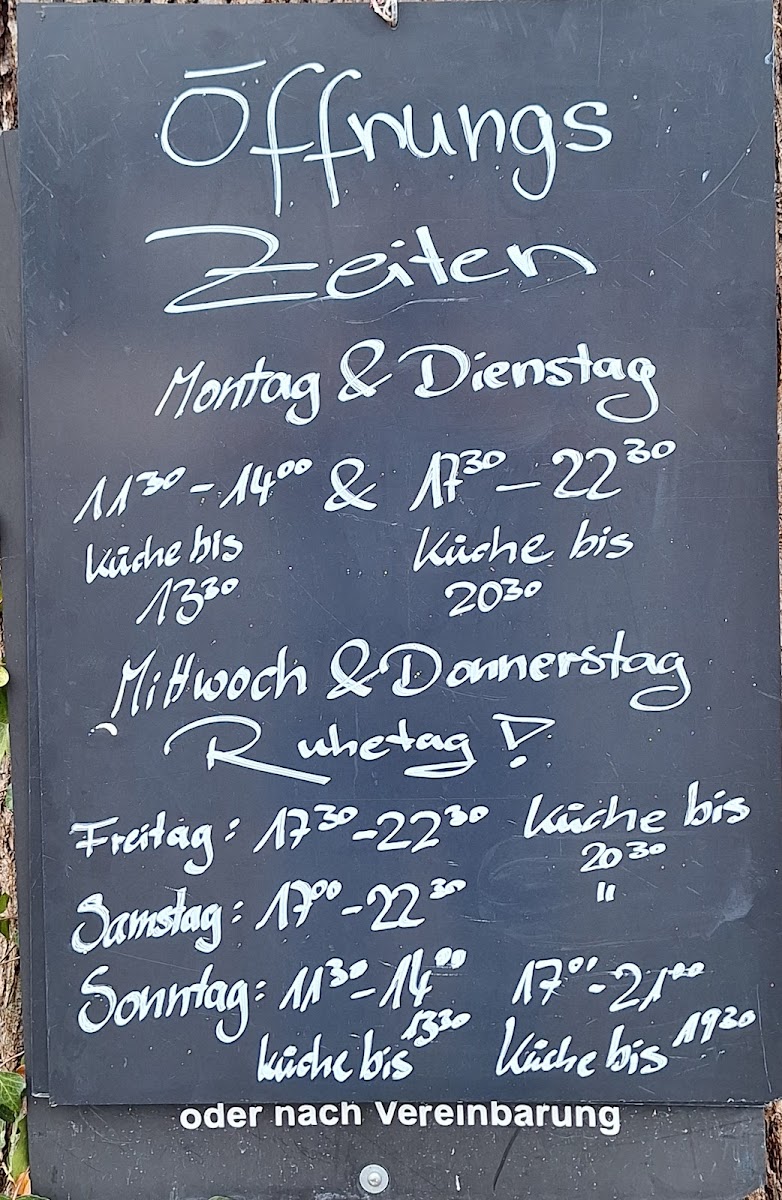 Öffnungs
Zeiten
Montag & Dienstag
11³⁰ - 14⁰⁰ & 17³⁰ - 22³⁰
Küche bis Küche bis
13³⁰ 20³⁰
Mittwoch & Donnerstag
Ruhetag !
Freitag: 17³⁰ - 22³⁰ Küche bis
20³⁰
Samstag: 17⁰⁰ - 22³⁰ "
Sonntag: 11³⁰ - 14⁰⁰ 17⁰⁰ - 21⁰⁰
Küche bis 13³⁰ Küche bis 19³⁰
oder nach Vereinbarung